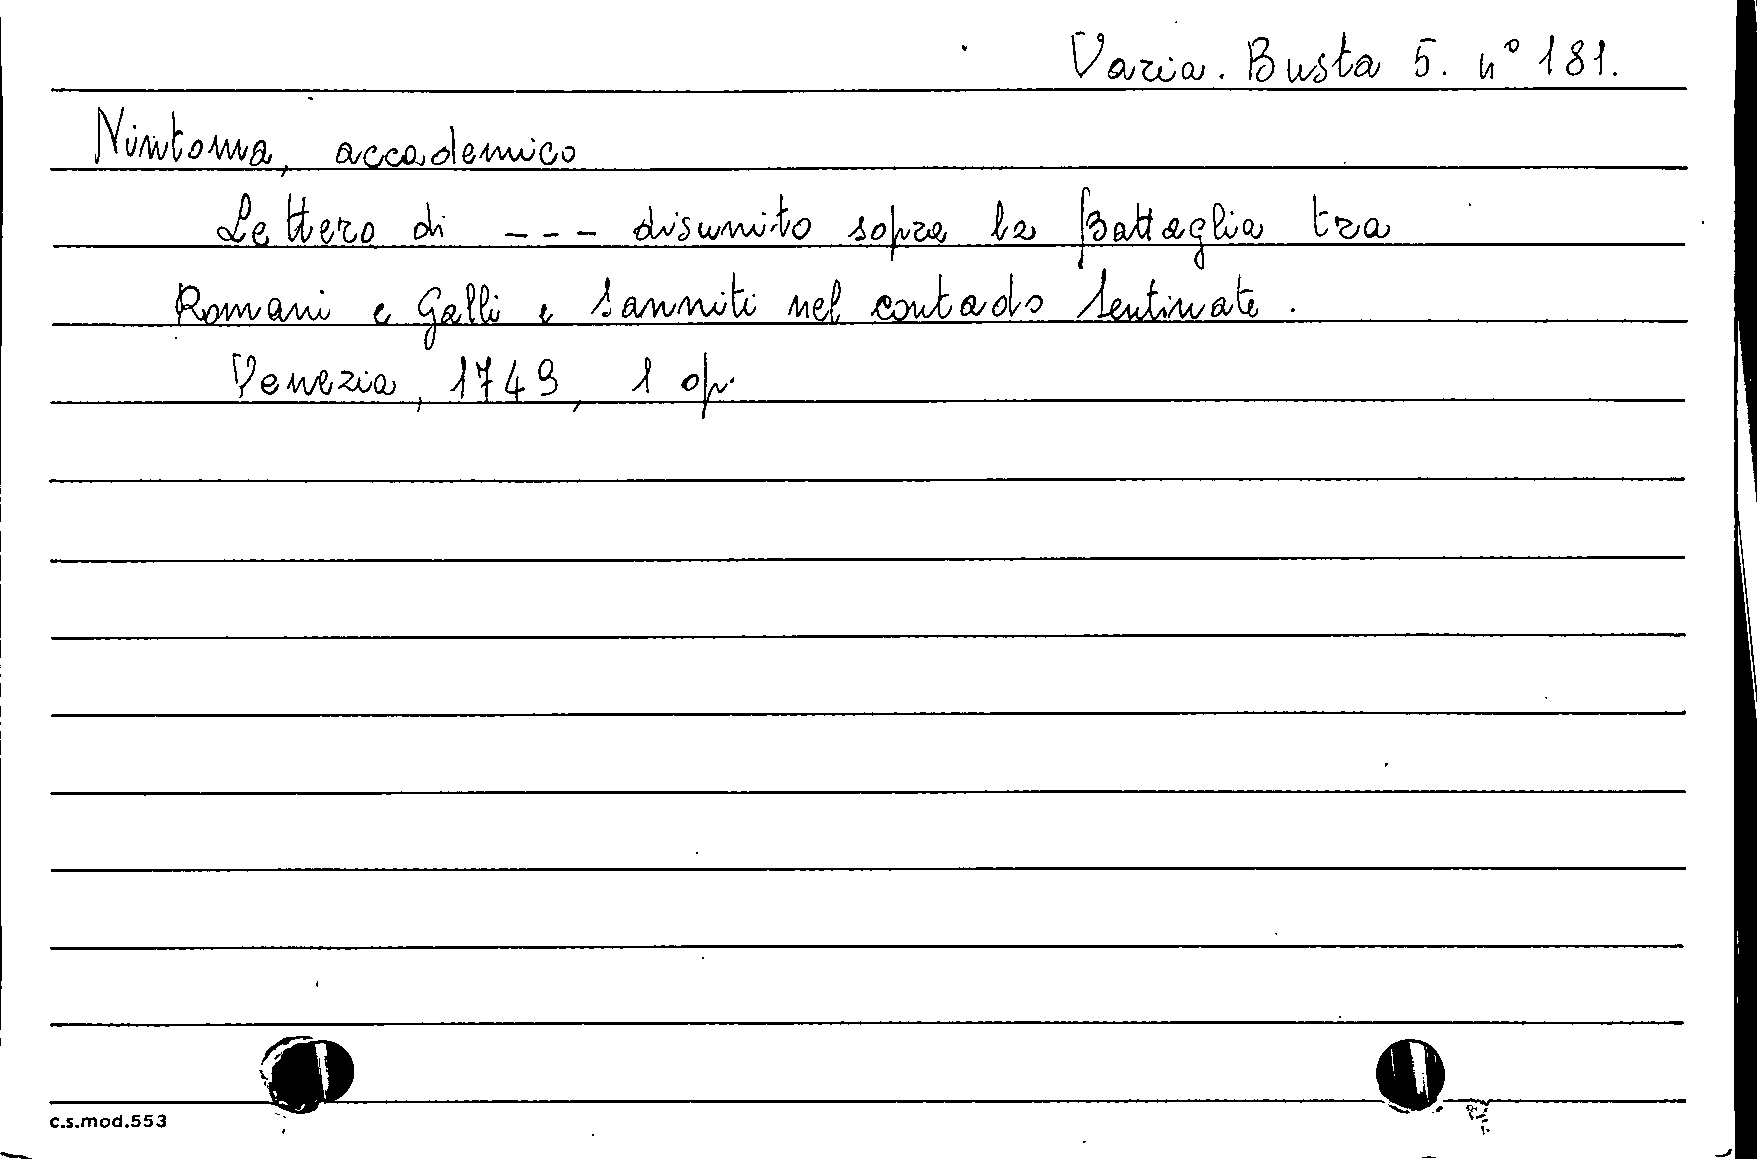 Varia. Busta 5. n° 181.
Nintoma, accademico
Lettera di --- disunito sopra la Battaglia tra
Romani e Galli e Sanniti nel contado Sentinate.
Venezia, 1749, 1 op.
c.s.mod.553